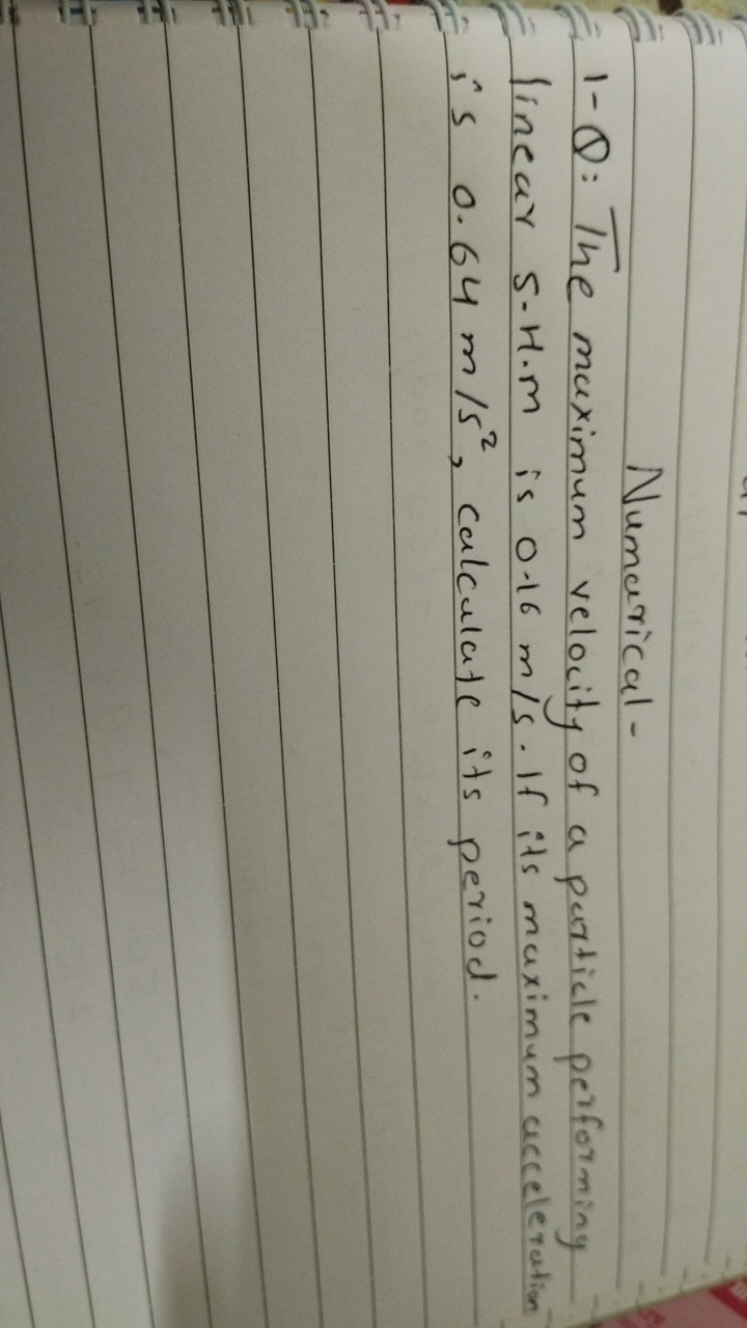 Numarical-
1-Q: The maximum velocity of a particle performing
linear S.H.m is 0.16 m/s. If its maximum acceleration
is 0.64 m/s², calculate its period.